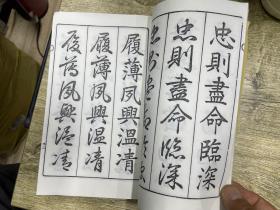 忠則盡命臨深
忠則盡命臨深
履薄夙興溫凊
履薄夙興温凊
履薄夙興温凊